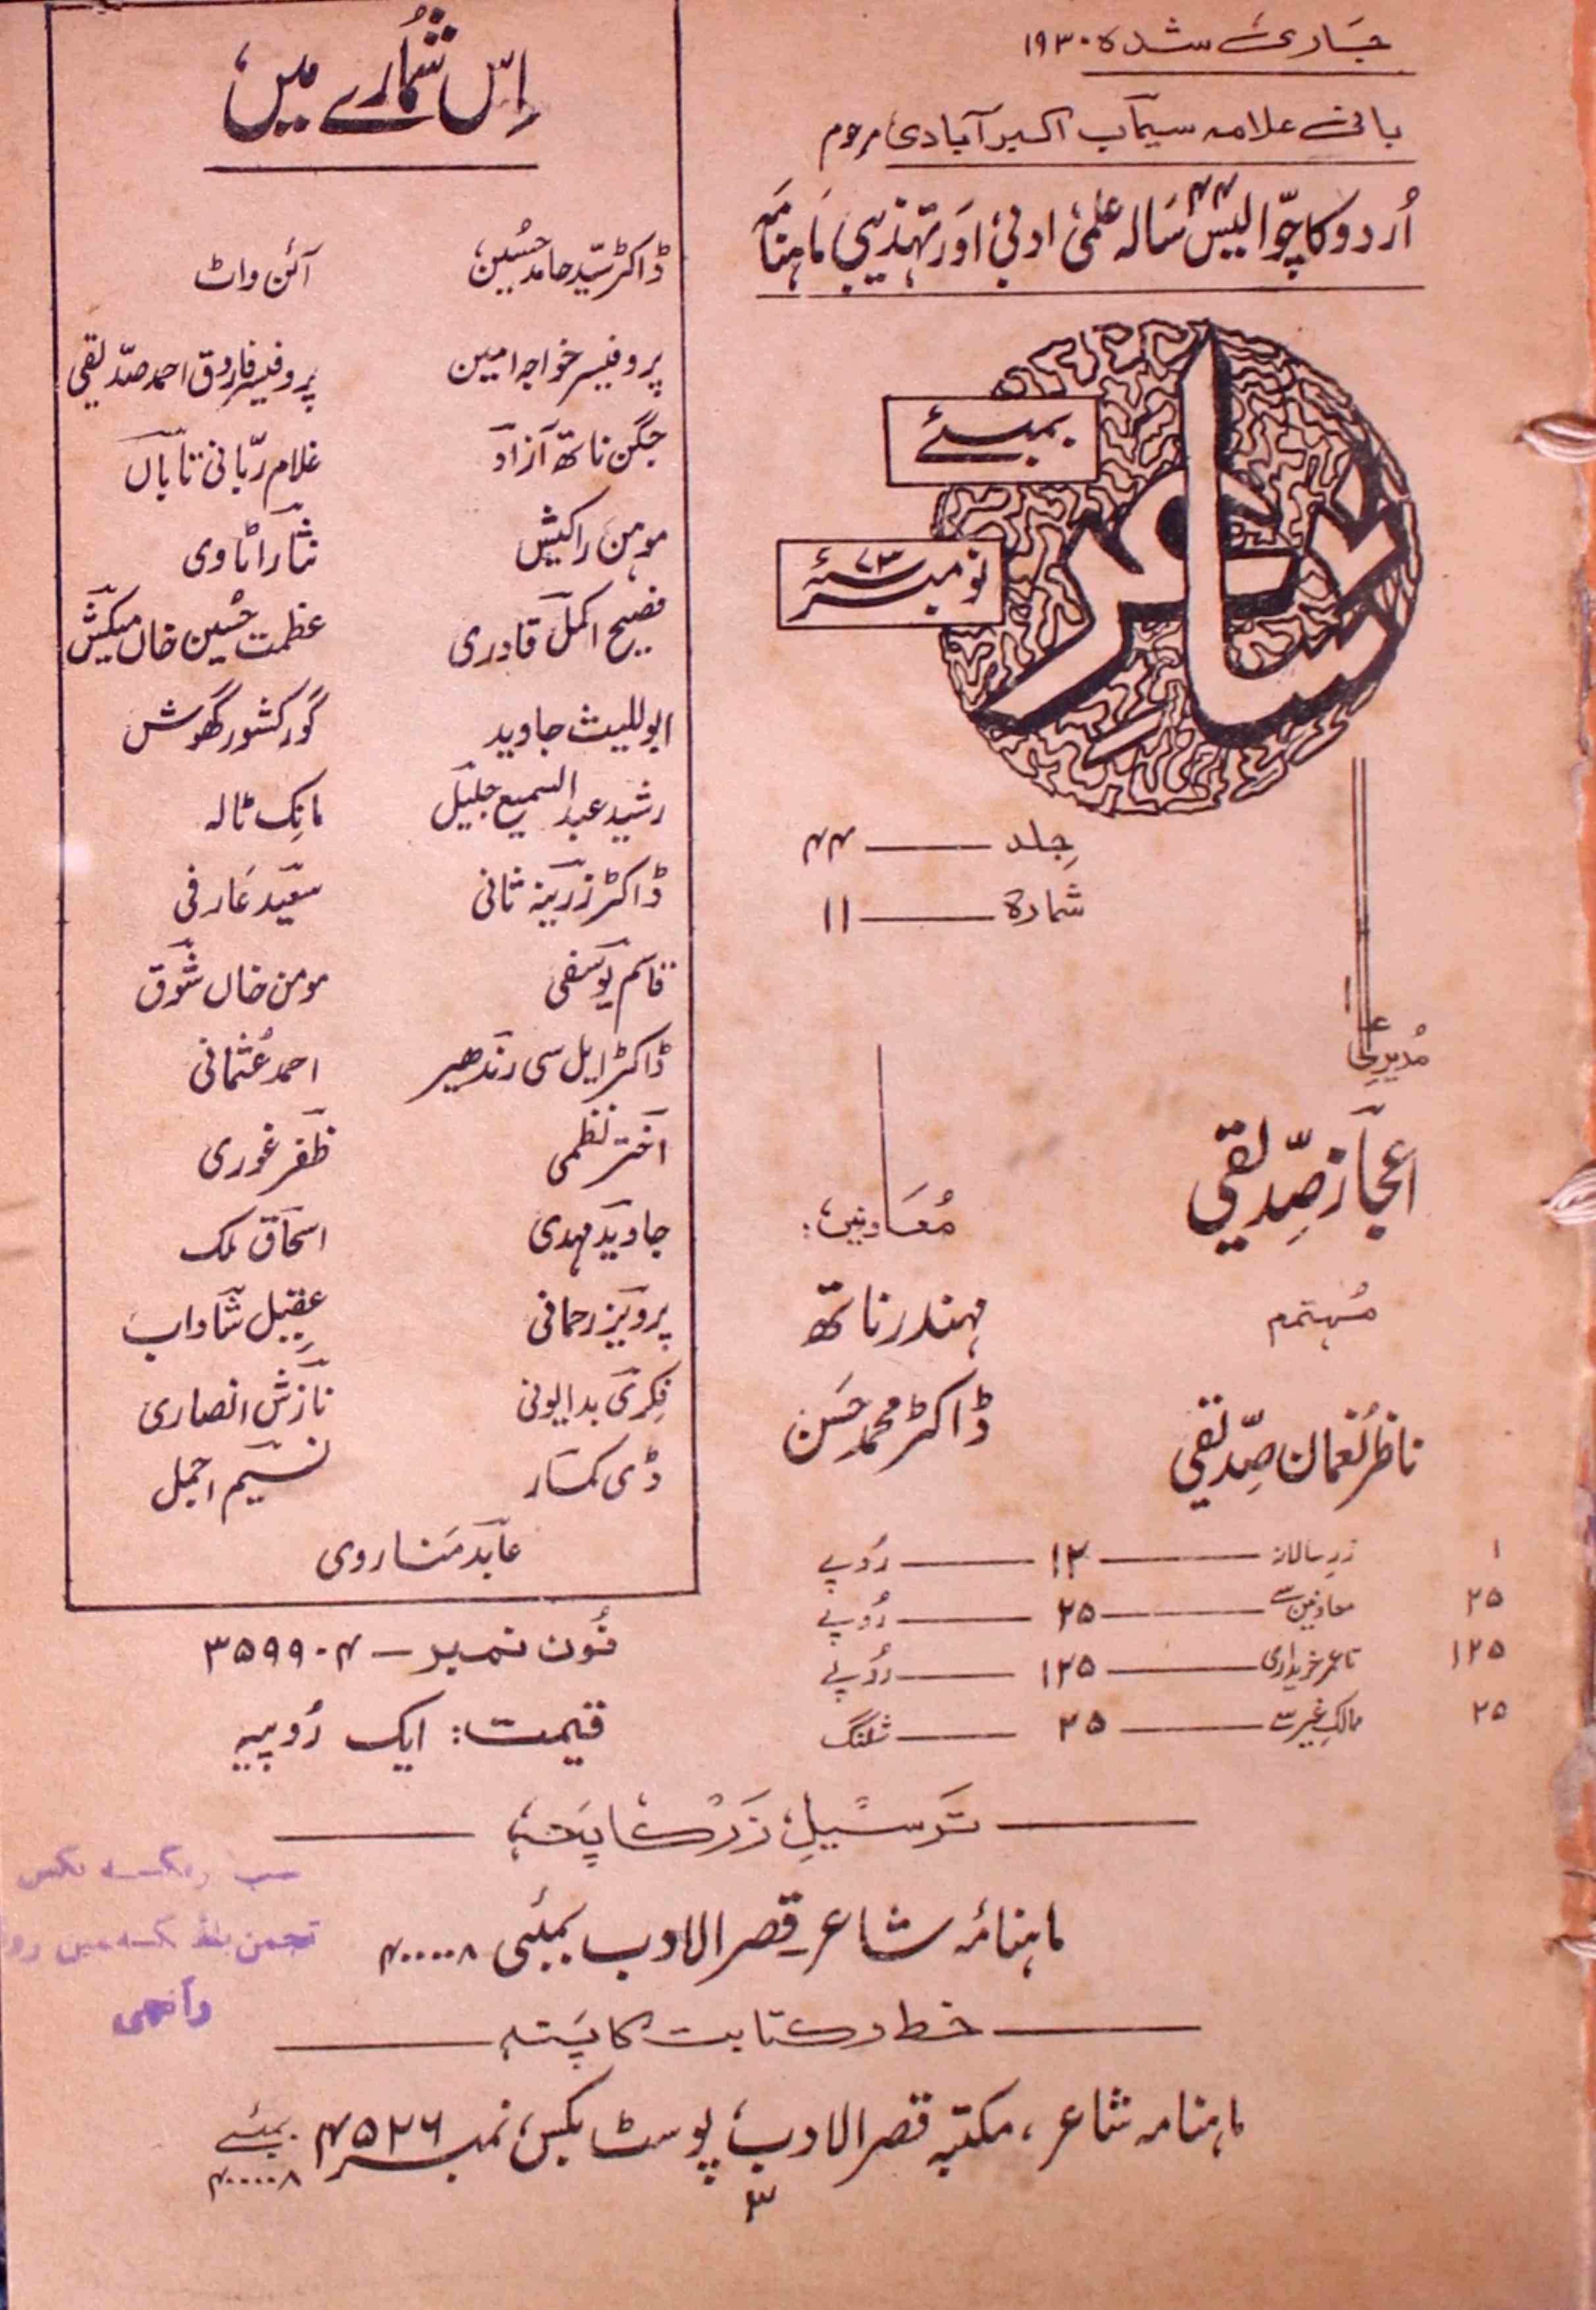 جاری شدہ ۱۹۳۰
بانی علامہ سیماب اکبرآبادی مرحوم
اُردو کا چوّالیس ۴۴ سالہ علمی ادبی اور تہذیبی ماہنامہ
شاعر
بمبئی
نومبر ۷۳ء
جلد ——— ۴۴
شمارہ ——— ۱۱
مُدیرِ اعلیٰ
اعجاز صدّیقی
مُہتمم
ناظر نُعمان صِدّیقی
مُعاونین:
مہندر ناتھ
ڈاکٹر محمد حَسن
زرِ سالانہ ——— ۱۲ ——— رُوپے
معاونین سے ——— ۲۵ ——— رُوپے
تا عمر خریداری ——— ۱۲۵ ——— رُوپے
ممالکِ غیر سے ——— ۲۵ ——— شلنگ
۱
۲۵
۱۲۵
۲۵
اِس شُمارے میں
ڈاکٹر سیّد حامد حُسین آئن واٹ
پروفیسر خواجہ امین پروفیسر فاروق احمد صدّیقی
جگن ناتھ آزاد غلام ربّانی تاباں
موہن راکیش نثار اٹاوی
فصیح اکمل قادری عظمت حُسین خاں میکش
ابو اللیث جاوید گور کشور گھوش
رشید عبد السمیع جلیل مانک ٹالہ
ڈاکٹر زرینہ ثانی سعید عارفی
قاسم یوسفی مومن خاں شوق
ڈاکٹر ایل سی رندھیر احمد عُثمانی
اختر نظمی ظفر غوری
جاوید مہدی اسحاق ملک
پرویز رحمانی عقیل شاداب
فکری بدایونی نازش انصاری
ڈی کمار نسیم اجمل
عابد مناروی
فُون نمبر — ۳۵۹۹۰۴
قیمت: ایک رُوپیہ
ترسیلِ زر کا پتہ
ماہنامہ شاعر۔ قصر الادب بمبئی ۴۰۰۰۰۸
خط و کتابت کا پتہ
ماہنامہ شاعر، مکتبہ قصر الادب، پوسٹ بکس نمبر ۴۵۲۶ بمبئی ۴۰۰۰۰۸
۳